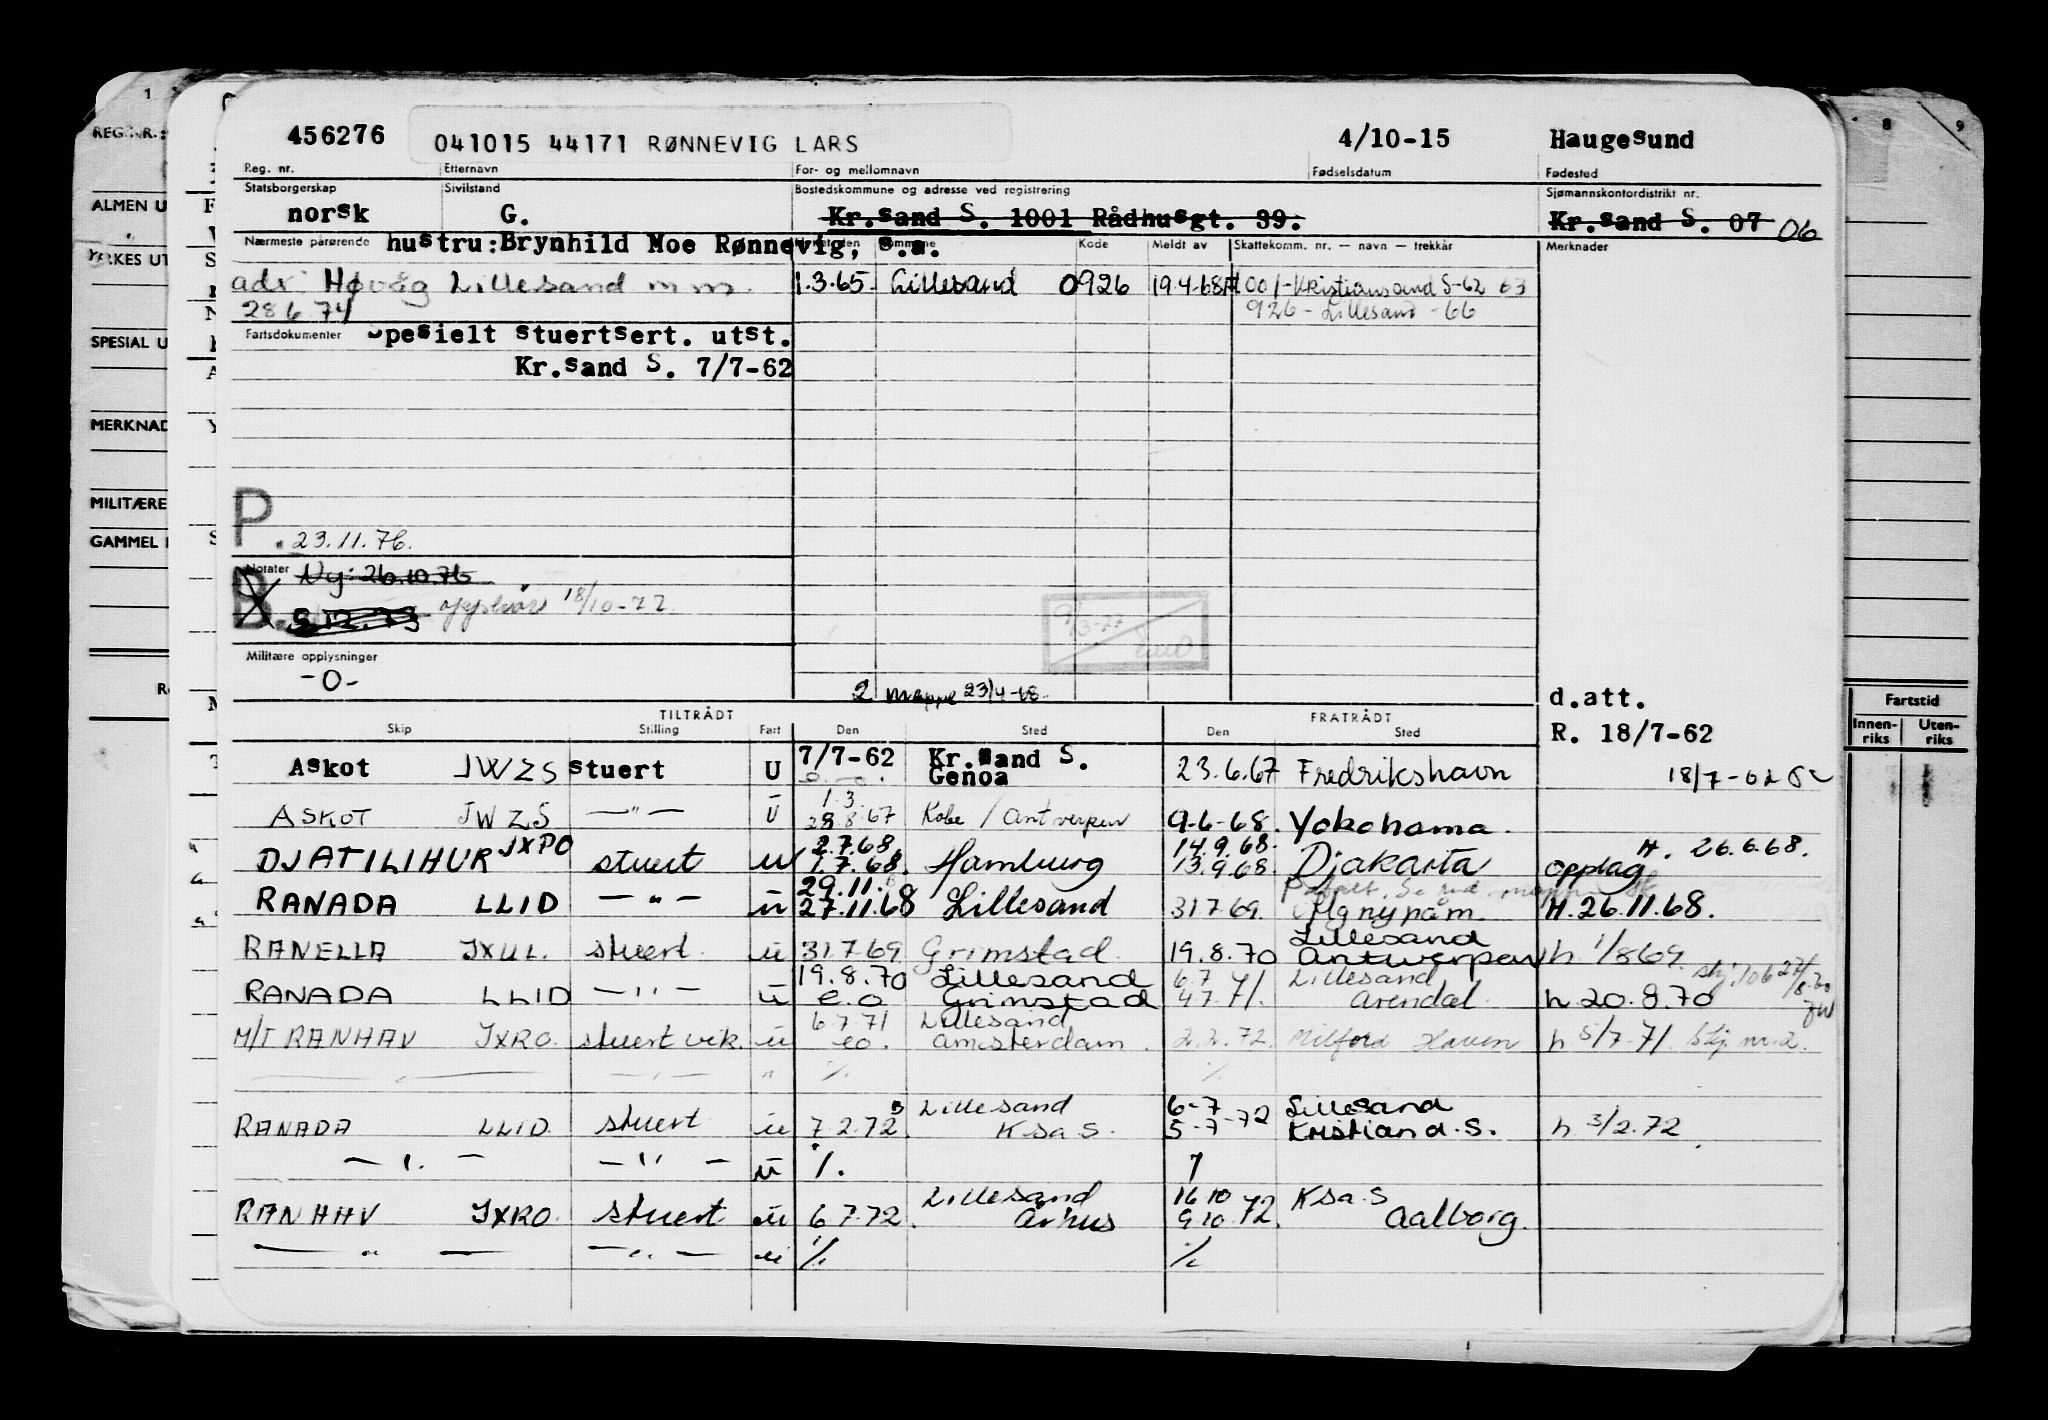 456276 041015 44171 RØNNEVIG LARS 4/10-15 Haugesund
Reg. nr. Etternavn For- og mellomnavn Fødselsdatum Fødested
Statsborgerskap Sivilstand Bostedskommune og adresse ved registrering Sjømannskontordistrikt nr.
norsk G. Kr.sand S. 1001 Rådhusgt. 39. Kr.sand S. 07 06
Nærmeste pårørende hustru: Brynhild Moe Rønnevig, s.a. Kode Meldt av Skattekomm. nr. — navn — trekkår Merknader
adr. Høvåg Lillesand m m. 1.3.65. Lillesand 0926 19.4.68 1001-Kristiansand S-62 63
28 6 74 926 - Lillesand - 66
Fartsdokumenter Spesielt stuertsert. utst.
Kr.sand S. 7/7-62
P. 23.11.76.
Notater Ny: 26.10.76
B. 18/10-77
9/3-77
Militære opplysninger
-0-
2 mappe 23/4-68. d.att.
TILTRÅDT FRATRÅDT
Skip Stilling Fart Den Sted Den Sted R. 18/7-62
Askot JWZS stuert U 7/7-62 Kr.sand S. Genoa 23.6.67 Fredrikshavn 18/7-62
ASKOT JWZS —"— U 1.3. 28.8.67 Kobe / Antwerpen 9-6-68. Yokohama.
DJATILIHUR JXPO stuert u 2.7.68 1.7.68. Hamburg 14.9.68. 13.9.68 Djakarta opplag H. 26.6.68.
RANADA LLID —"— u 29.11. 27.11.68 Lillesand 31 7 69. H. 26.11.68.
RANELLA JXUL. stuert. u 31.7.69 Grimstad. 19.8.70 Lillesand Antwerpen h 1/8 69.
RANADA LLID —"— u 19.8.70 e.o Lillesand Grimstad 6.7 4.7.71. Lillesand Arendal. h 20.8.70
M/T RANHAV JXRO. stuert vik. u 6 7.71 eo. Lillesand Amsterdam. 2.2.72. Milford Haven h 5/7.71. nr. 2.
—"— —"— " %. %
RANADA LLID. stuert u 7.2.72. Lillesand Ksa S. 6-7 5-7-72 Lillesand Kristiand.S. h 3/2.72
—"— —"— u %.
RANHAV JXRO. stuert u 6 7.72. Lillesand Århus 16 10 9 10.72. Ksa.S Aalborg.
—"— —"— u % %
REG.NR.:
ALMEN U
YRKES UT
SPESIAL U
MERKNAD
MILITÆRE
GAMMEL
1
8 9
Fartstid
Innen-riks Uten-riks